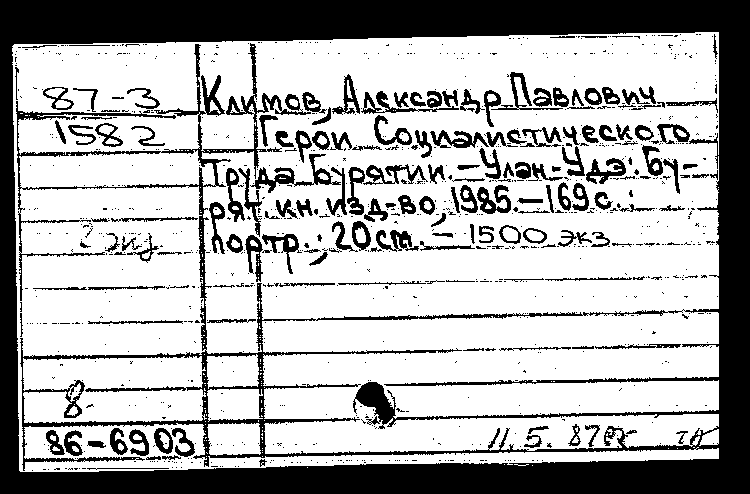 87-3 Климов, Александр Павлович
1582 Герои Социалистического
Труда Бурятии. — Улан-Удэ: Бу-
рят. кн. изд-во, 1985. — 169 с.:
2 экз портр.; 20 см. — 1500 экз
8
86-6903 11.5.87